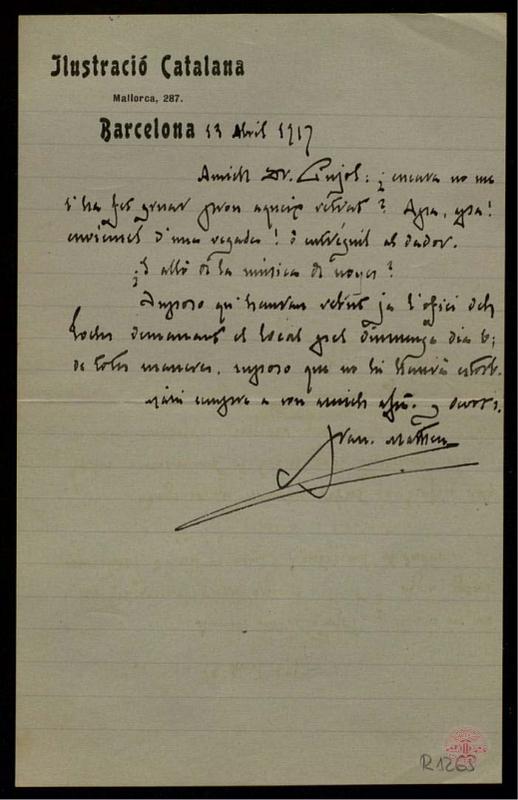 Ilustració Catalana
Mallorca, 287.
Barcelona 13 Abril 1917
Amich Dr. Pujol: ¿encara no me
l'ha fet prou aqueix retrat? Apa, apa!
envíemel d'una vegada! ó entréguil al dador.
¿I allò de la música de noyes?
Suposo qu'hauran rebut ja l'ofici dels
Jochs demanant el local pel diumenge dia 6;
de totes maneres, suposo que no hi haurà estorb.
Mani sempre a son amich afm. y devot s.
Fran. Matheu
R.1265